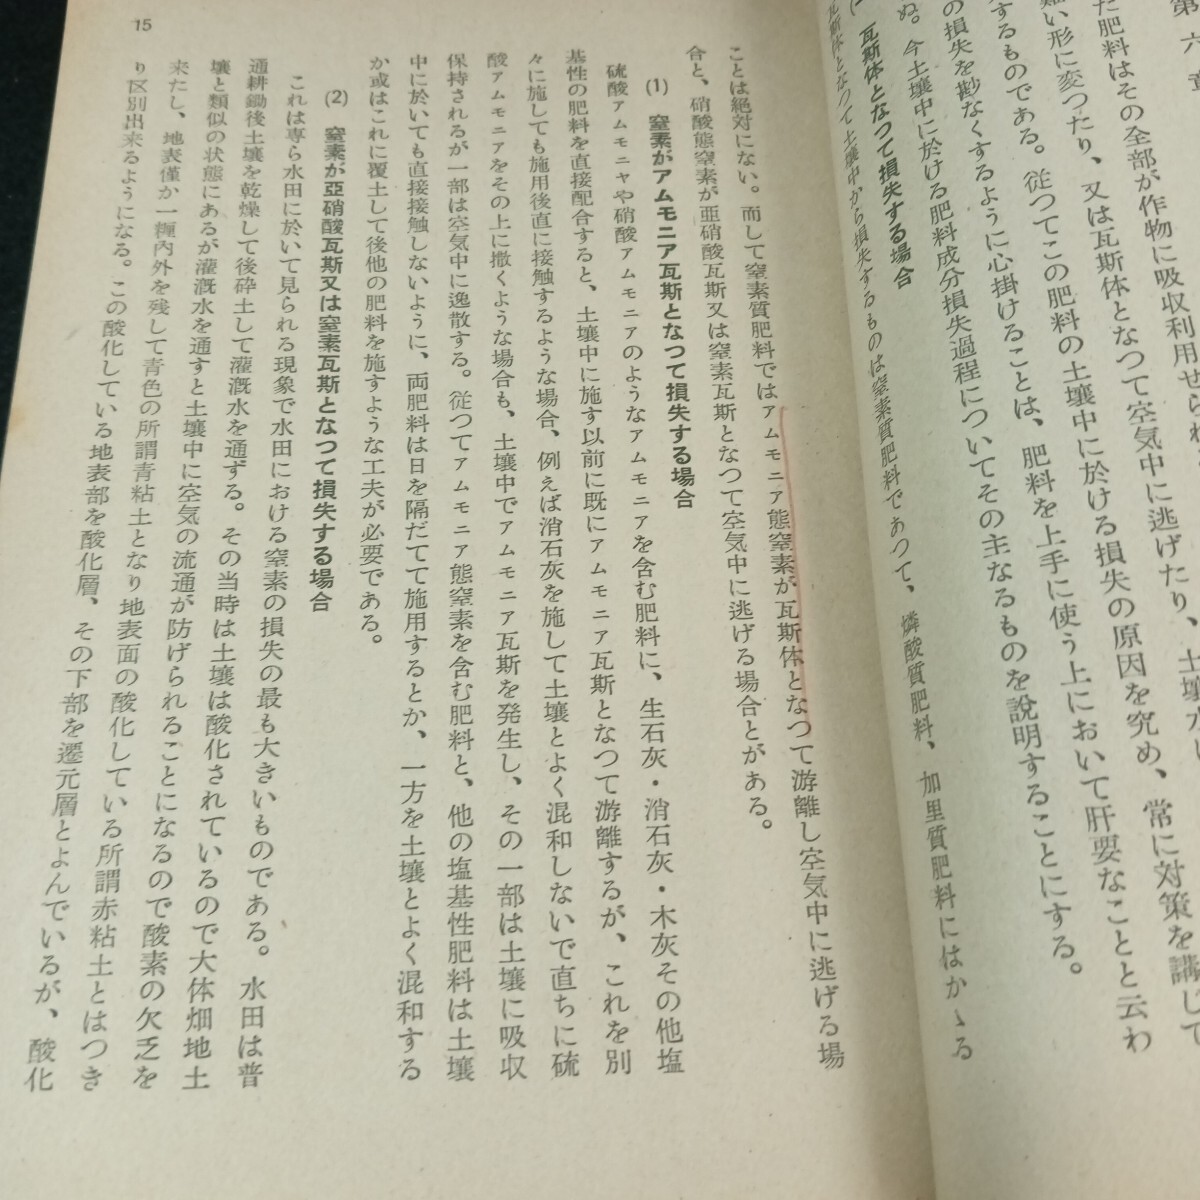 第六章
た肥料はその全部が作物に吸収利用せられ
難い形に変つたり、又は瓦斯体となつて空気中に逃げたり、土壌水
するものである。従つてこの肥料の土壌中に於ける損失の原因を究め、常に対策を講じて
の損失を尠なくするように心掛けることは、肥料を上手に使う上において肝要なことと云わ
ぬ。今土壌中に於ける肥料成分損失過程についてその主なるものを説明することにする。
(一 瓦斯体となつて損失する場合
瓦斯体となつて土壌中から損失するものは窒素質肥料であつて、燐酸質肥料、加里質肥料にはかゝる
15
ことは絶対にない。而して窒素質肥料ではアムモニア態窒素が瓦斯体となつて游離し空気中に逃げる場
合と、硝酸態窒素が亜硝酸瓦斯又は窒素瓦斯となつて空気中に逃げる場合とがある。
(1) 窒素がアムモニア瓦斯となつて損失する場合
硫酸アムモニヤや硝酸アムモニアのようなアムモニアを含む肥料に、生石灰・消石灰・木灰その他塩
基性の肥料を直接配合すると、土壌中に施す以前に既にアムモニア瓦斯となつて游離するが、これを別
々に施しても施用後直に接触するような場合、例えば消石灰を施して土壌とよく混和しないで直ちに硫
酸アムモニアをその上に撒くような場合も、土壌中でアムモニア瓦斯を発生し、その一部は土壌に吸収
保持されるが一部は空気中に逸散する。従つてアムモニア態窒素を含む肥料と、他の塩基性肥料は土壌
中に於いても直接接触しないように、両肥料は日を隔だてて施用するとか、一方を土壌とよく混和する
か或はこれに覆土して後他の肥料を施すような工夫が必要である。
(2) 窒素が亜硝酸瓦斯又は窒素瓦斯となつて損失する場合
これは専ら水田に於いて見られる現象で水田における窒素の損失の最も大きいものである。水田は普
通耕鋤後土壌を乾燥して後砕土して灌漑水を通ずる。その当時は土壌は酸化されているので大体畑地土
壌と類似の状態にあるが灌漑水を通すと土壌中に空気の流通が防げられることになるので酸素の欠乏を
来たし、地表僅か一糎内外を残して青色の所謂青粘土となり地表面の酸化している所謂赤粘土とはつき
り区別出来るようになる。この酸化している地表部を酸化層、その下部を還元層とよんでいるが、酸化